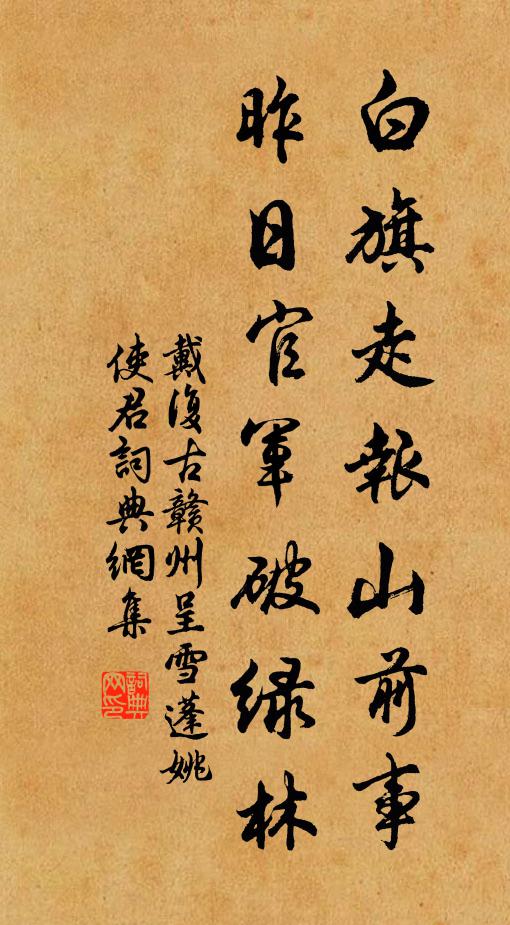 白旗走報山前事
昨日官軍破緑林
戴復古贛州呈雪蓬姚
使君詞典網集
詞典網印